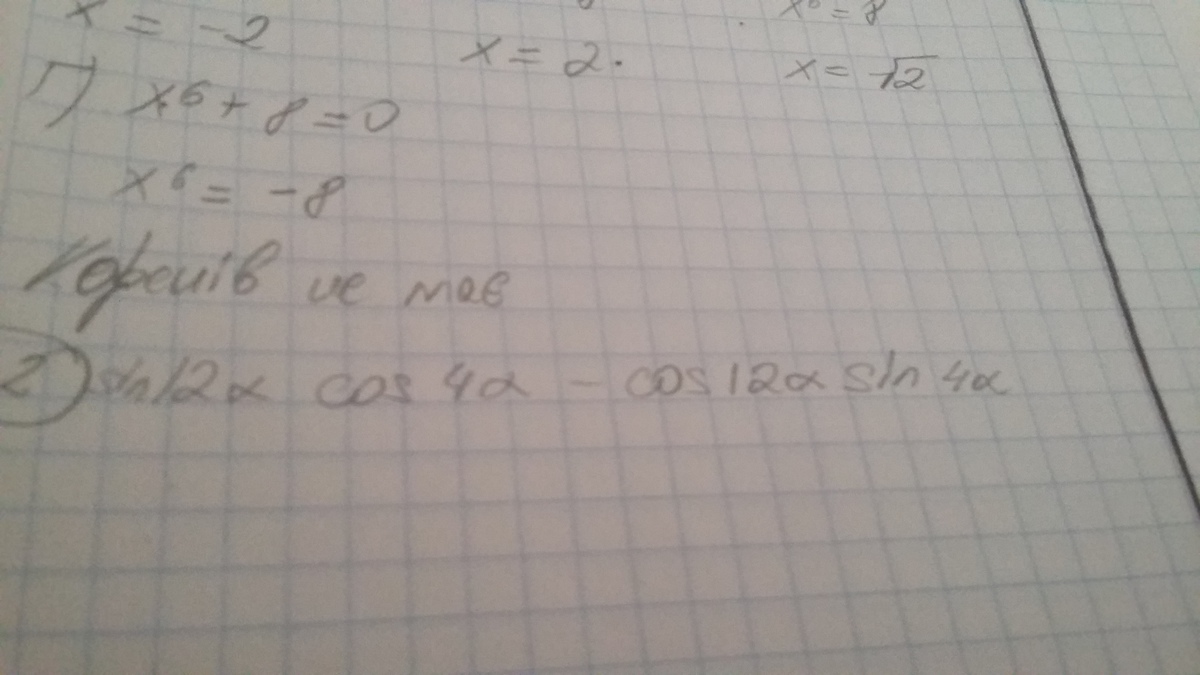 x = -2
x = 2.
x⁶ = 8
x = √2
Г) x⁶ + 8 = 0
x⁶ = -8
Коренів не має
2) sin12α cos 4α - cos12α sin 4α